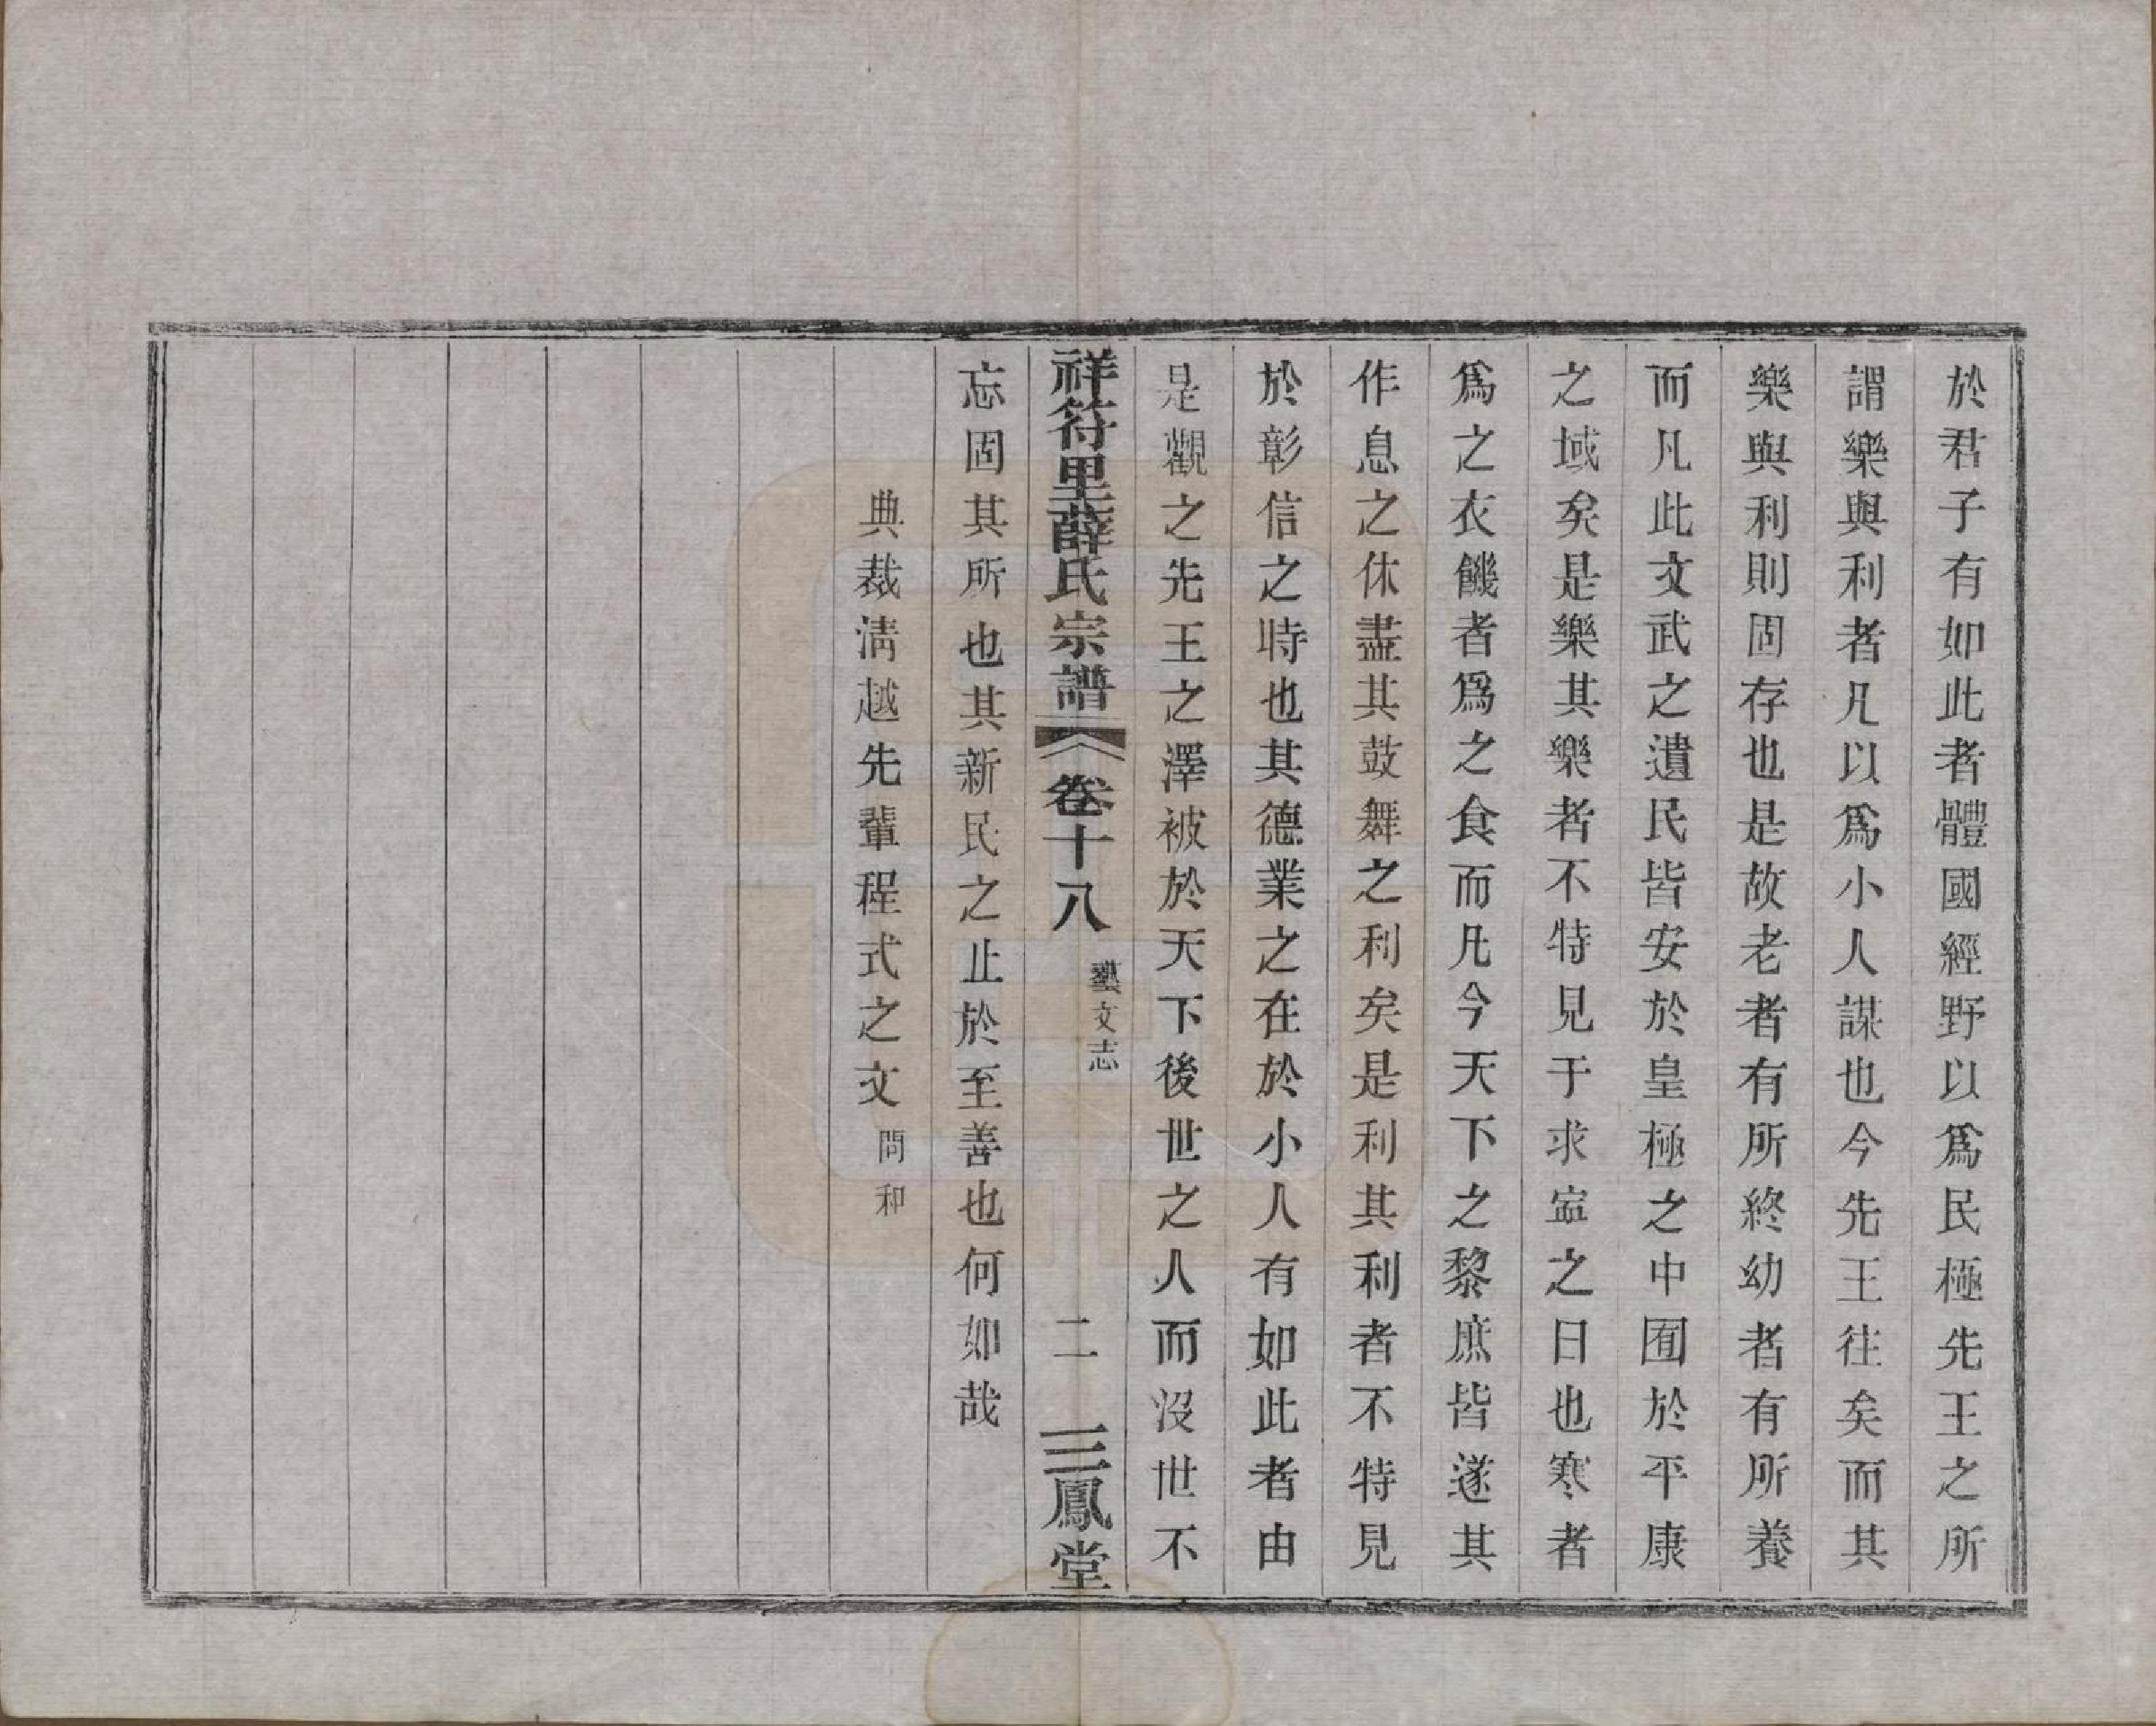 於君子有如此者體國經野以爲民極先王之所
謂樂與利者凡以爲小人謀也今先王往矣而其
樂與利則固存也是故老者有所終幼者有所養
而凡此文武之遺民皆安於皇極之中囿於平康
之域矣是樂其樂者不特見于求寍之日也寒者
爲之衣饑者爲之食而凡今天下之黎庶皆遂其
作息之休盡其鼓舞之利矣是利其利者不特見
於彰信之時也其德業之在於小人有如此者由
是觀之先王之澤被於天下後世之人而沒世不
祥符里薛氏宗譜 卷十八 藝文志 二 三鳳堂
忘固其所也其新民之止於至善也何如哉
典裁淸越先輩程式之文 問和